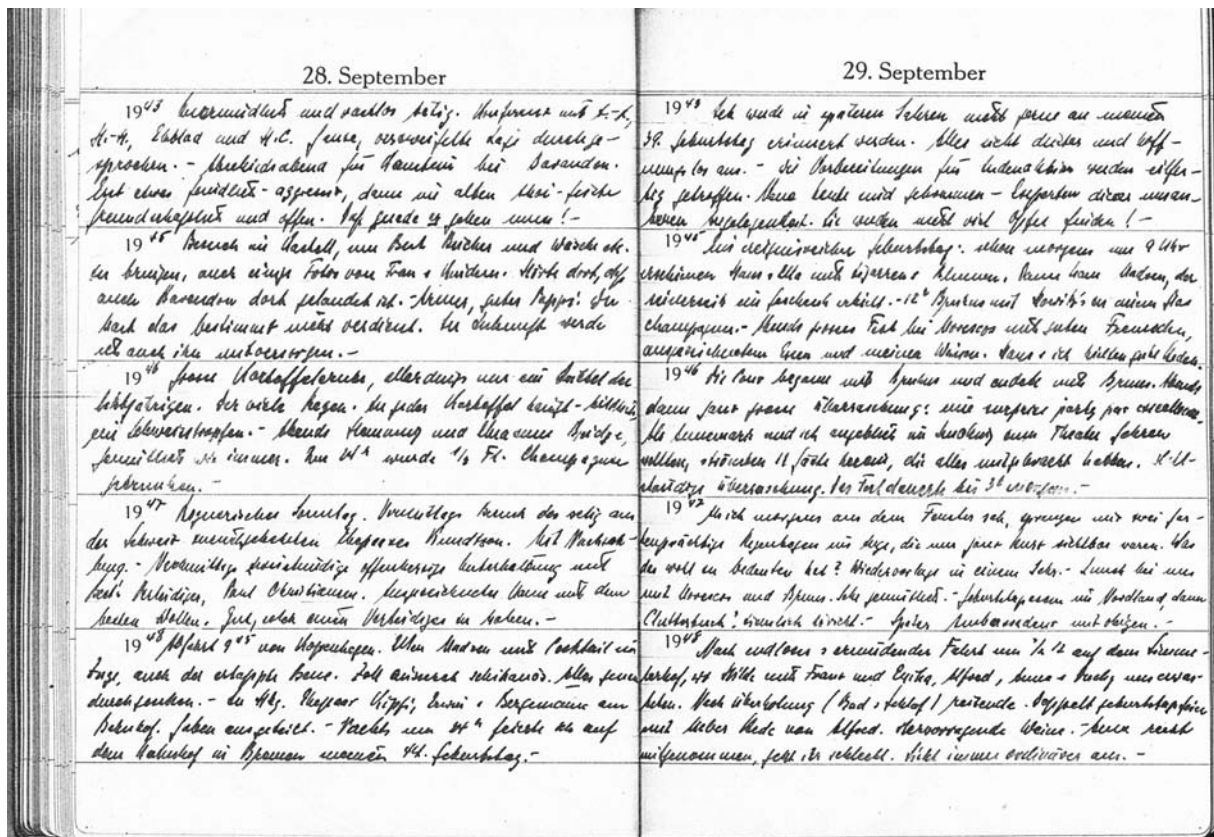 28. September
1943 Unermüdlich und rastlos tätig. Konferenz mit
H.-H., Ekblad und H.C. Ganze, verzweifelte Lage durchge-
sprochen. - Abschiedsabend für bei Barandon.
Erst etwas feindlich-aggressiv, dann in alter
freundschaftlich und offen. Daß gerade er gehen muss! -
1945 Besuch im Kastell, um Bert Bücher und Wäsche etc.
zu bringen, auch einige Fotos von Frau & Kindern. Hörte dort, daß
auch Barandon dort gelandet ist. - Armer, guter Pappi! Der
hat das bestimmt nicht verdient. In Zukunft werde
ich auch ihn mitversorgen. -
1946 Grosse Kartoffelernte, allerdings nur ein Drittel der
letztjährigen. Der viele Regen. An jeder Kartoffel hängt
ein Schweisstropfen. - Abends Hemming und Madame Bridge,
gemütlich wie immer. Um 24h wurde 1/2 Fl. Champagner
getrunken. -
1947 Regnerischer Sonntag. Vormittags Besuch des selig aus
der Schweiz zurückgekehrten Ehepaares Knudtzon. Mit
- Nachmittags zweistündige offenherzige Unterhaltung mit
Bert's Verteidiger, Poul Christiansen. Ausgezeichneter Mann mit dem
besten Wollen. Gut, solch einen Verteidiger zu haben. -
1948 Abfahrt 9 45 von Kopenhagen. Ellen Madsen mit Cocktail im
Zuge, auch der Zoll äusserst schikanös. Alles
durchgesunken. - In Hbg. Ehepaar & Bergemann am
Bahnhof. Gaben ausgeteilt. - Nachts um 24h feierte ich auf
dem Bahnhof in Bremen meinen 44. Geburtstag. -
29. September
1943 Ich werde in späteren Jahren nicht gerne an meinen
39. Geburtstag erinnert werden. Alles sieht düster und hoff-
nungslos aus. - Die Vorbereitungen für Judenaktion werden eilfer-
tig getroffen. Neue Leute sind gekommen - Experten dieser unsau-
beren Angelegenheit. Sie werden nicht viel Opfer finden! -
1945 Ein ereignisreicher Geburtstag: schon morgens um 9 Uhr
erscheinen Hans & Ella mit Zigarren & Blumen. Dann kam Madsen, der
seinerseits ein Geschenk erhielt. - 12h Bruhns mit zu einem Glas
Champagner. - Abends grosses Fest bei Morescos mit guten Freunden,
ausgezeichnetem Essen und meinen Weinen. Hans & ich hielten gute Reden.
1946 Die Cour begann mit Bruhns und endete mit Bruns. Abends
dann ganz grosse Überraschung: eine surprise party par excellence.
Als Annemarie und ich angeblich zum Theater fahren
wollten, strömten 12 Gäste herein, die alles mitgebracht hatten.
Überraschung. Das Fest dauerte bis 3h morgens. -
1947 Als ich morgens aus dem Fenster sah, sprangen mir zwei far-
benprächtige Regenbogen ins Auge, die nur ganz kurz sichtbar waren. Was
das wohl zu bedeuten hat? Wiedervorlage in einem Jahr. - Lunch bei uns
mit Morescos und Bruns. Sehr gemütlich. - Geburtstagsessen im Nordland, dann
Clutterbuck: ziemlich töricht. - Später Ambassadeur mit obigen. -
1948 Nach endloser & ermüdender Fahrt um 1/2 12 auf dem
bahnhof, wo Hilde mit Franz und Alfred, Anna & uns erwar-
teten. Nach Überholung (Bad & Schlaf) reizende Doppelt Geburtstagsfeier
mit lieber Rede von Alfred. Hervorragende Weine. - Anna recht
mitgenommen, geht ihr schlecht. Sieht immer ordinärer aus. -